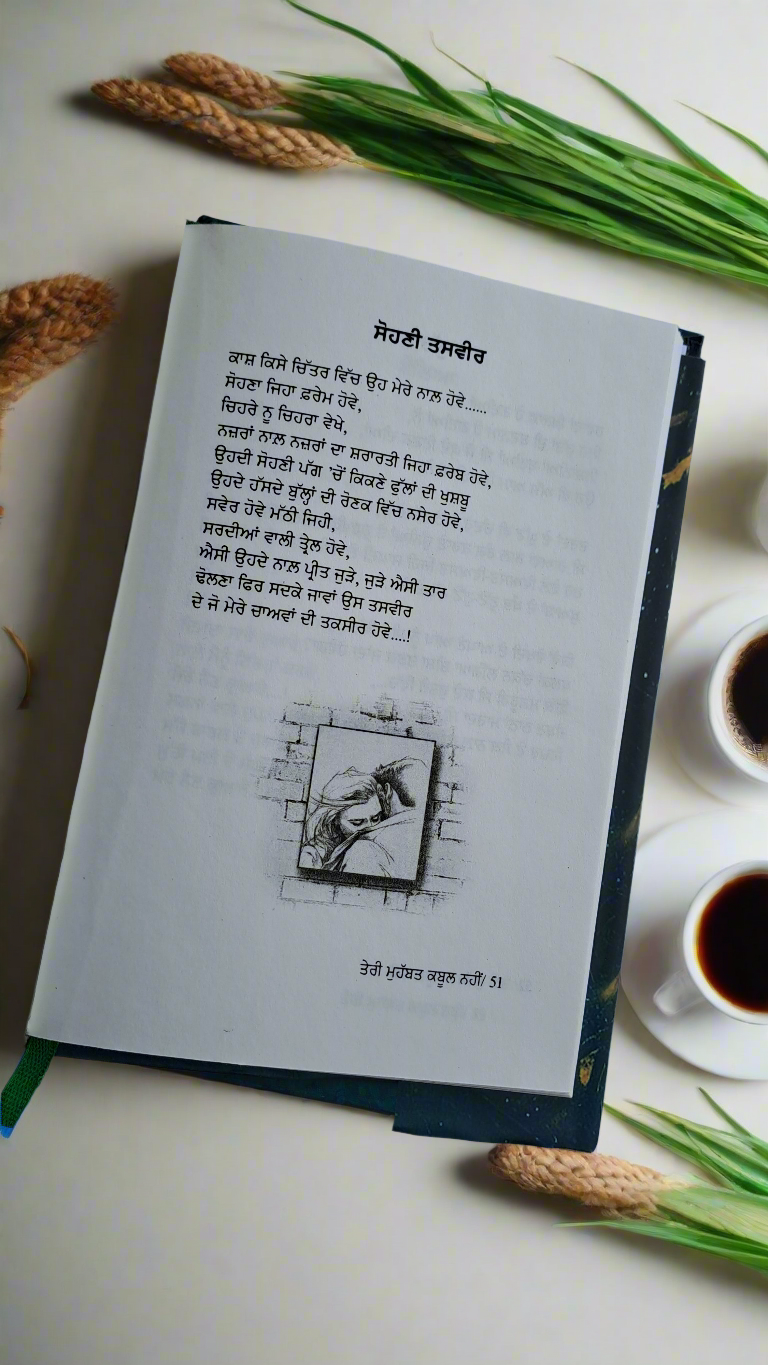 ਸੋਹਣੀ ਤਸਵੀਰ
ਕਾਸ਼ ਕਿਸੇ ਚਿੱਤਰ ਵਿੱਚ ਉਹ ਮੇਰੇ ਨਾਲ਼ ਹੋਵੇ......
ਸੋਹਣਾ ਜਿਹਾ ਫ਼ਰੇਮ ਹੋਵੇ,
ਚਿਹਰੇ ਨੂ ਚਿਹਰਾ ਵੇਖੇ,
ਨਜ਼ਰਾਂ ਨਾਲ਼ ਨਜ਼ਰਾਂ ਦਾ ਸ਼ਰਾਰਤੀ ਜਿਹਾ ਫ਼ਰੇਬ ਹੋਵੇ,
ਉਹਦੀ ਸੋਹਣੀ ਪੱਗ 'ਚੋਂ ਕਿਕਣੇ ਫੁੱਲਾਂ ਦੀ ਖੁਸ਼ਬੂ
ਉਹਦੇ ਹੱਸਦੇ ਬੁੱਲ੍ਹਾਂ ਦੀ ਰੋਣਕ ਵਿੱਚ ਨਸੇਰ ਹੋਵੇ,
ਸਵੇਰ ਹੋਵੇ ਮੱਠੀ ਜਿਹੀ,
ਸਰਦੀਆਂ ਵਾਲੀ ਤ੍ਰੇਲ ਹੋਵੇ,
ਐਸੀ ਉਹਦੇ ਨਾਲ਼ ਪ੍ਰੀਤ ਜੁੜੇ, ਜੁੜੇ ਐਸੀ ਤਾਰ
ਢੋਲਣਾ ਫਿਰ ਸਦਕੇ ਜਾਵਾਂ ਉਸ ਤਸਵੀਰ
ਦੇ ਜੋ ਮੇਰੇ ਚਾਅਵਾਂ ਦੀ ਤਕਸੀਰ ਹੋਵੇ....!
ਤੇਰੀ ਮੁਹੱਬਤ ਕਬੂਲ ਨਹੀਂ/ 51